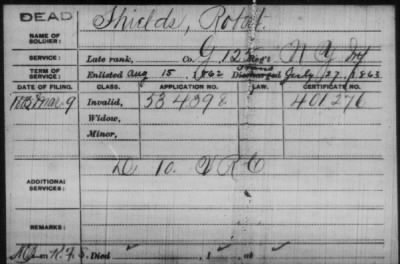 DEAD
Shields, Robert
NAME OF SOLDIER:
SERVICE: Late rank, Co. G, 125 Reg't N Y Inf
TERM OF SERVICE: Enlisted Aug 15, 1862 Discharged July 27, 1863
DATE OF FILING. CLASS. APPLICATION NO. LAW. CERTIFICATE NO.
Mar 9 Invalid, 401276
Widow,
Minor,
ADDITIONAL SERVICES: 10. V R C
REMARKS:
Died , 1 , at